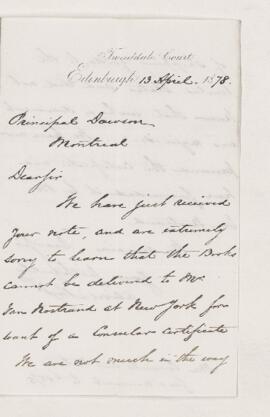 Tweeddale Court
Edinburgh 13 April. 1878.
Principal Dawson
Montreal
Dear Sir
We have just received
your note, and are extremely
sorry to learn that the Books
cannot be delivered to Mr
Van Nostrand at New York for
want of a Consular Certificate
We are not much in the way